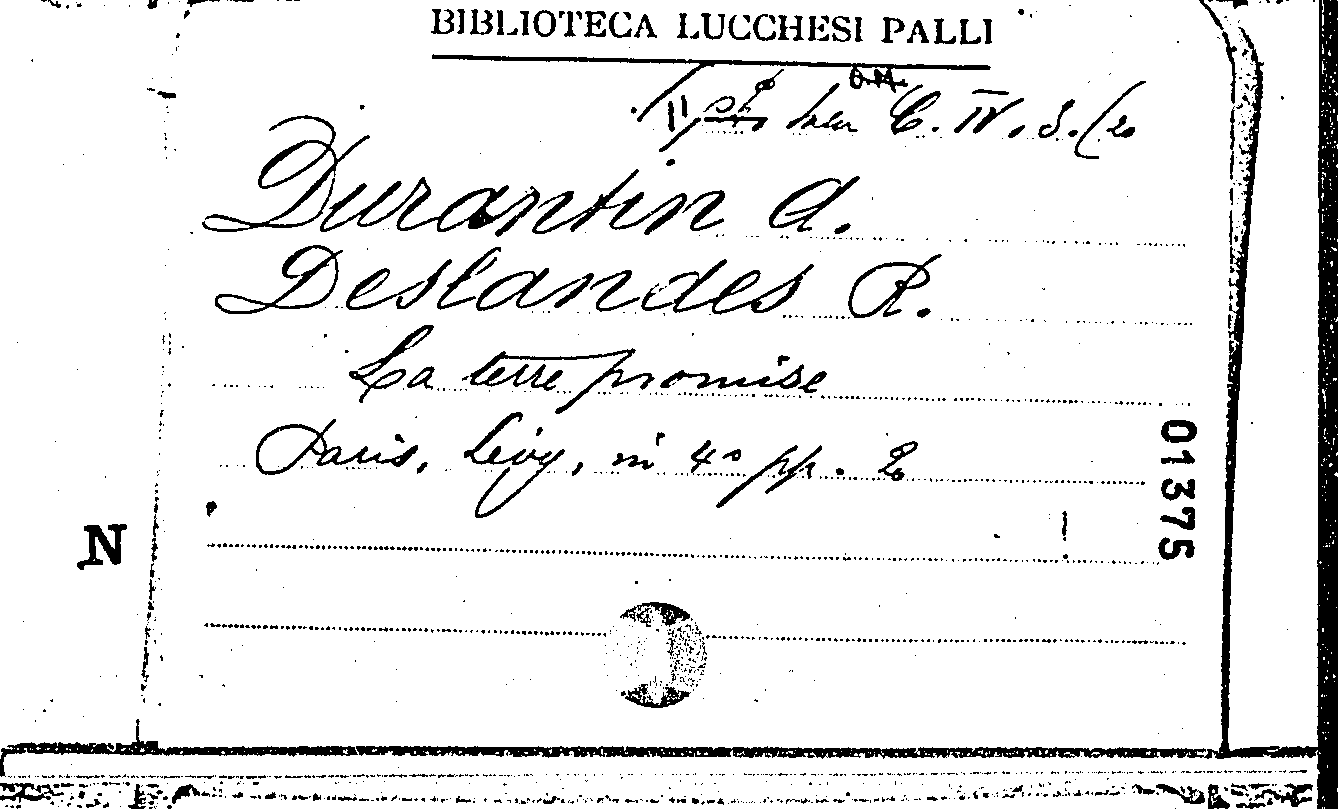 BIBLIOTECA LUCCHESI PALLI
Sala C. IV. 3. (20
Durantin A.
Deslandes R.
La terre promise
Paris, Lévy, in 4º pp. 20
01375
N